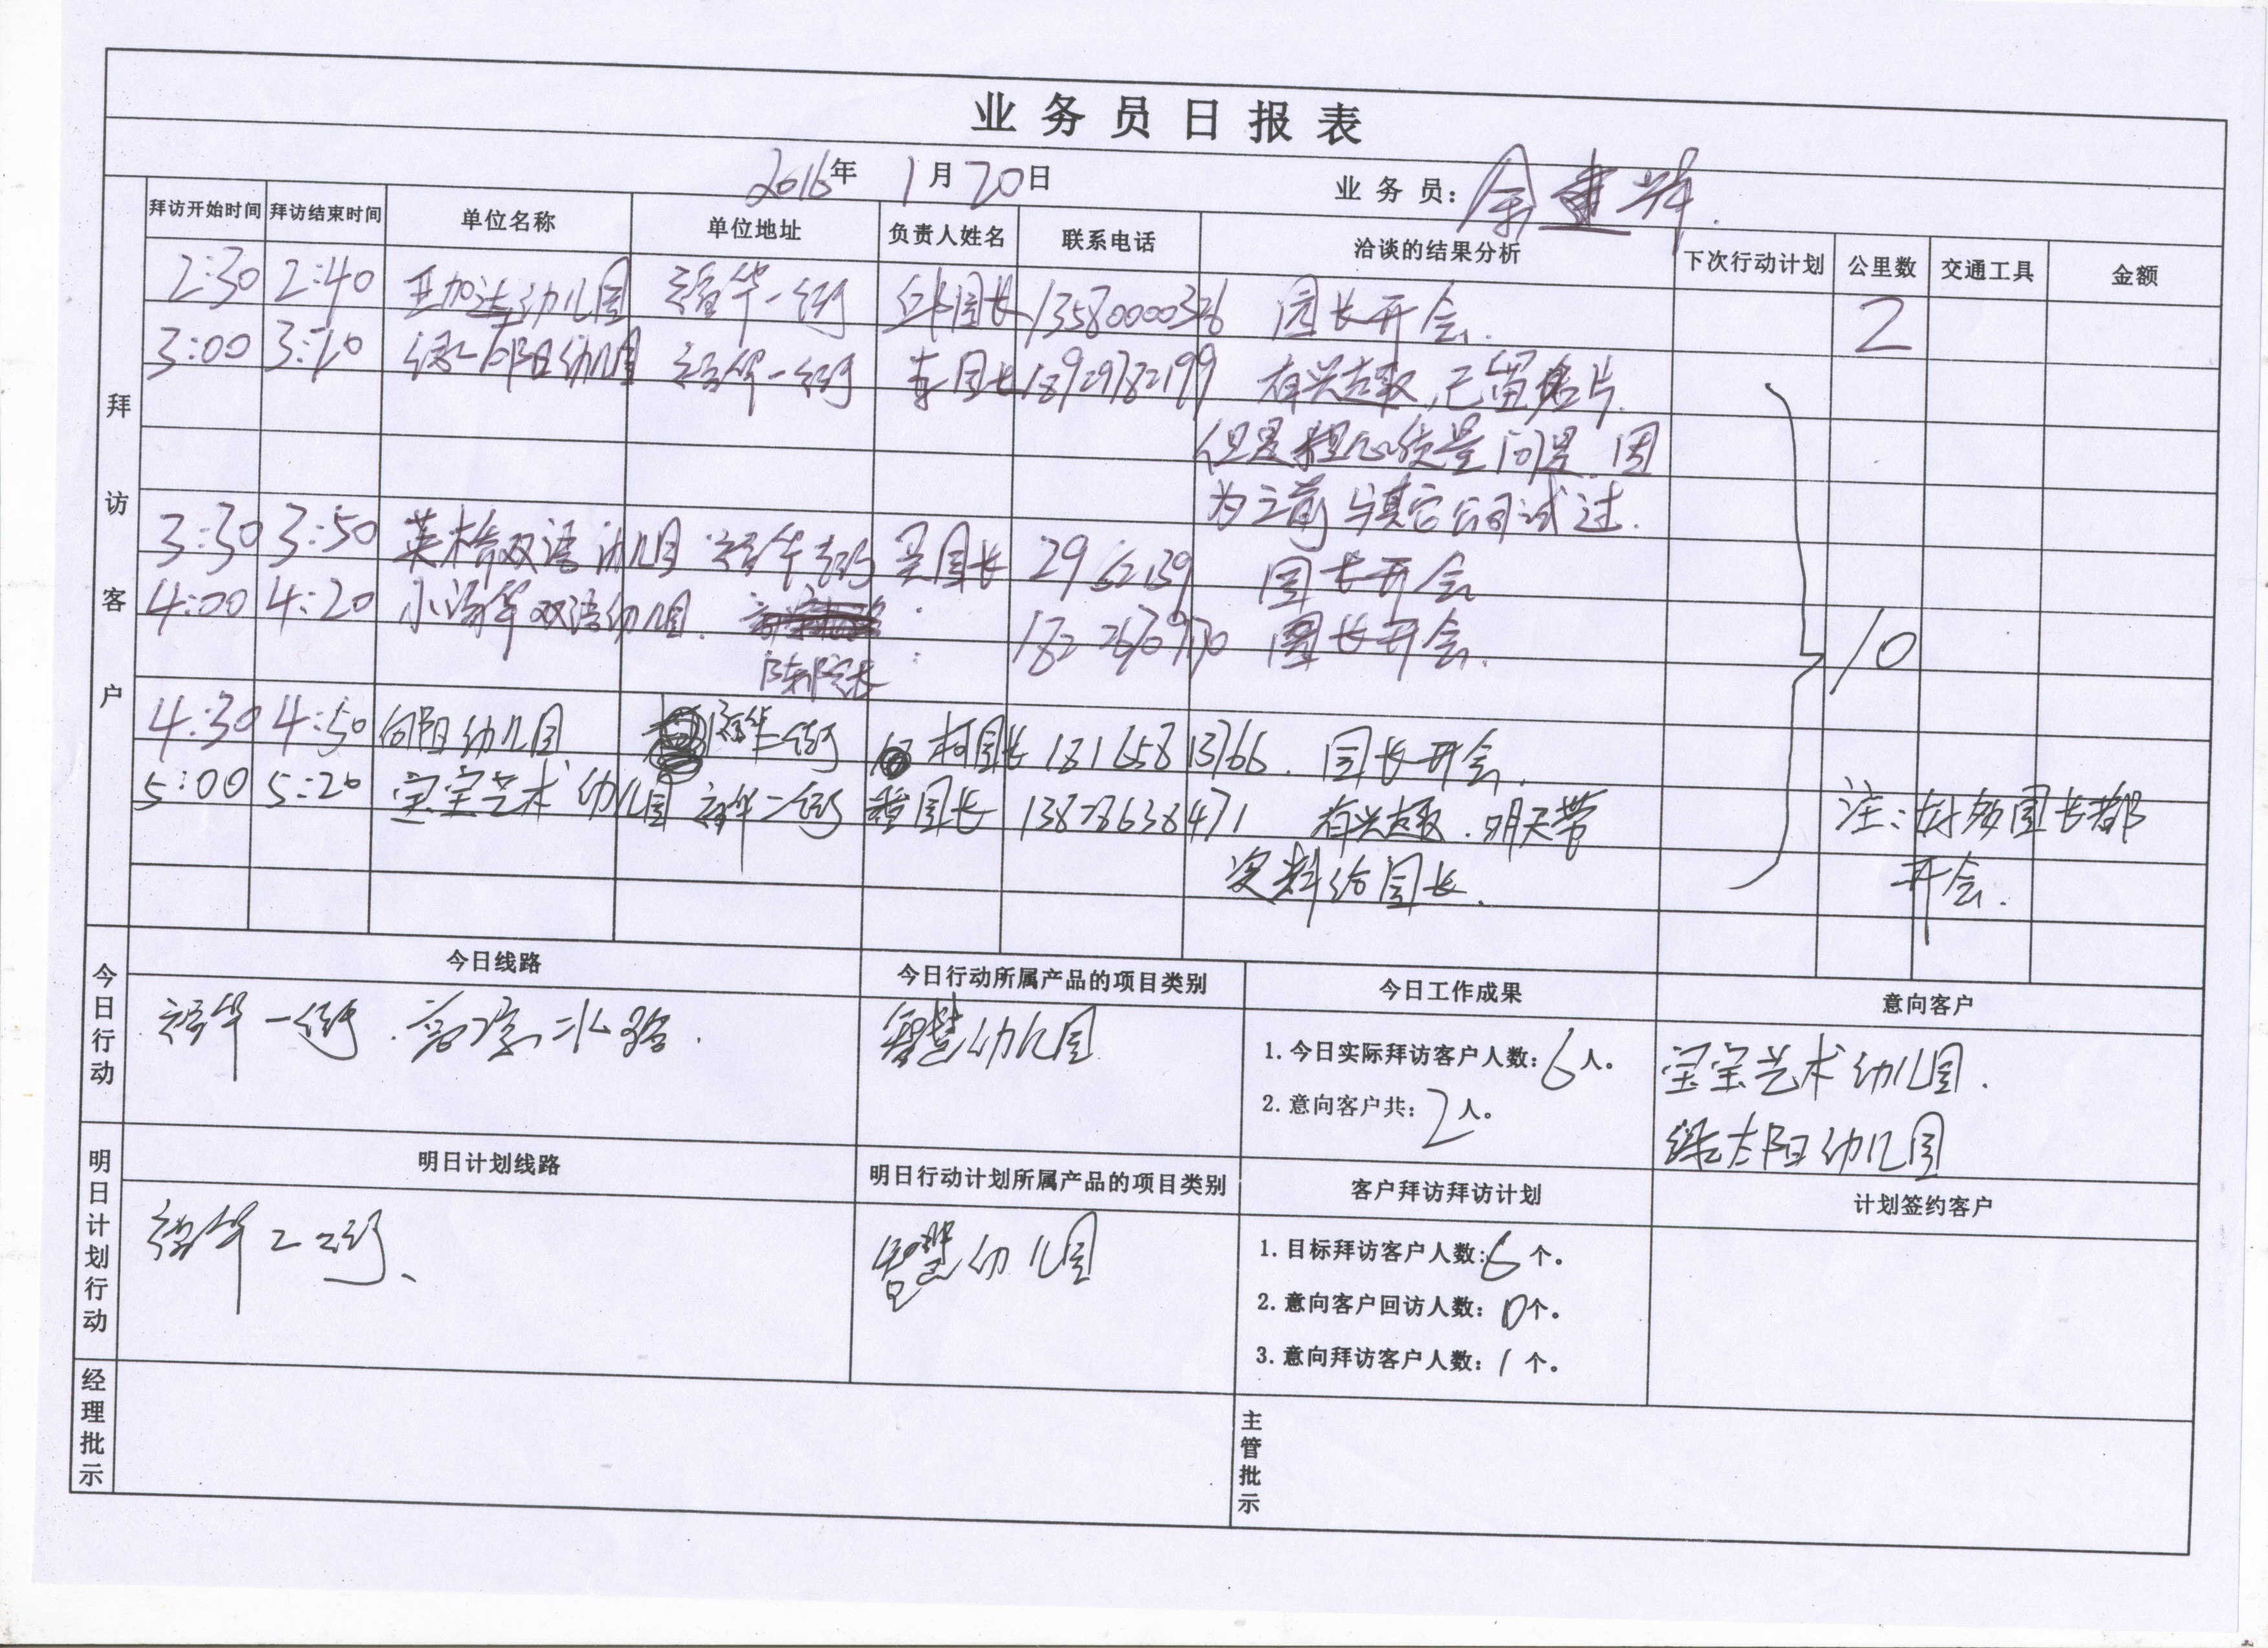 业务员日报表
2016年 1月20日 业务员：余建
拜访客户
拜访开始时间 拜访结束时间 单位名称 单位地址 负责人姓名 联系电话 洽谈的结果分析 下次行动计划 公里数 交通工具 金额
2:30 2:40 亚加达幼儿园 华一街 邱园长 园长开会. 2
3:00 3:20 阳幼儿园 华一街 李园长 18929782199 有兴趣,已留名片.
但是担心质量问题.因
为之前与其它公司试过.
3:30 3:50 英 双语幼儿园 华 吴园长 园长开会
4:00 4:20 小 华双语幼儿园. 园长开会. 10
陈院长
4:30 4:50 向阳幼儿园 华二街 柯园长 18165813766. 园长开会.
5:00 5:20 宝宝艺术幼儿园 华二街 程园长 13828638471 有兴趣.明天带 注:好多园长都
资料给园长. 开会.
今日行动
今日线路 今日行动所属产品的项目类别 今日工作成果 意向客户
华一街. 路. 智慧幼儿园
1.今日实际拜访客户人数:6人。 宝宝艺术幼儿园.
2.意向客户共:2人。 绿太阳幼儿园
明日计划行动
明日计划线路 明日行动计划所属产品的项目类别 客户拜访拜访计划 计划签约客户
华 街、 智慧幼儿园
1.目标拜访客户人数:6个。
2.意向客户回访人数:0个。
3.意向拜访客户人数:1个。
经理批示 主管批示